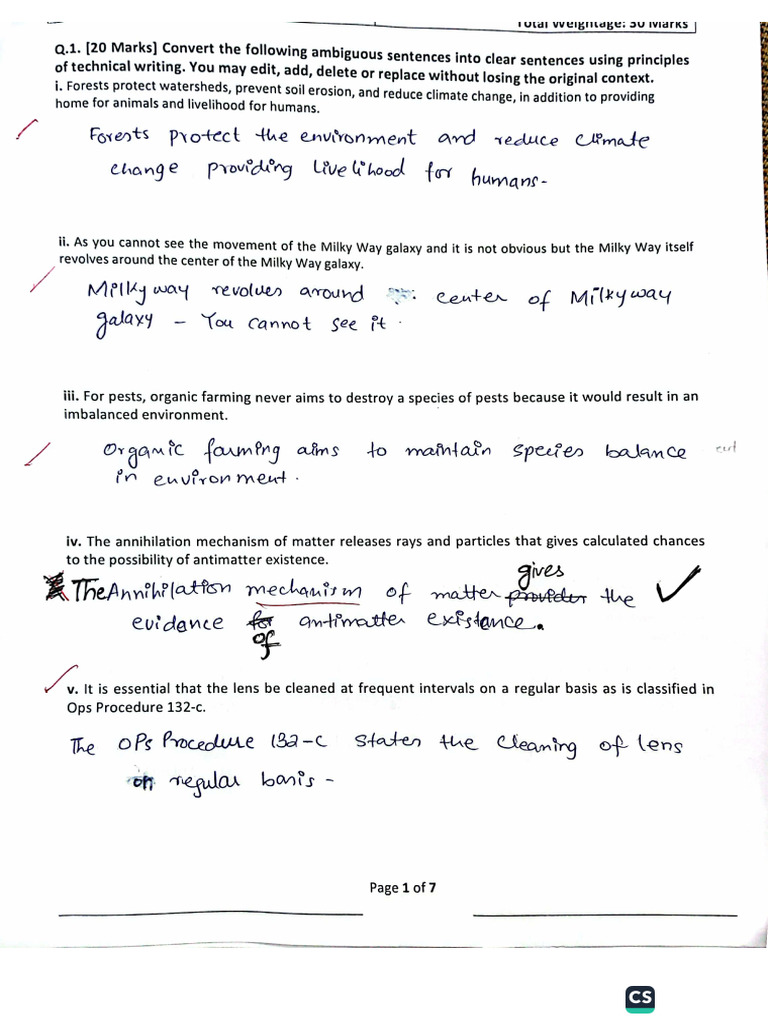 Total Weightage: 30 Marks
Q.1. [20 Marks] Convert the following ambiguous sentences into clear sentences using principles
of technical writing. You may edit, add, delete or replace without losing the original context.
i. Forests protect watersheds, prevent soil erosion, and reduce climate change, in addition to providing
home for animals and livelihood for humans.
Forests protect the environment and reduce climate
change providing livelihood for humans-
ii. As you cannot see the movement of the Milky Way galaxy and it is not obvious but the Milky Way itself
revolves around the center of the Milky Way galaxy.
Milky way revolves around center of Milkyway
galaxy - You cannot see it.
iii. For pests, organic farming never aims to destroy a species of pests because it would result in an
imbalanced environment.
Organic farming aims to maintain species balance
in environment.
iv. The annihilation mechanism of matter releases rays and particles that gives calculated chances
to the possibility of antimatter existence.
gives
The Annihilation mechanism of matter provides the
evidance for antimatter existance.
of
v. It is essential that the lens be cleaned at frequent intervals on a regular basis as is classified in
Ops Procedure 132-c.
The OPs Procedure 132-C states the cleaning of lens
on regular basis -
Page 1 of 7
CS